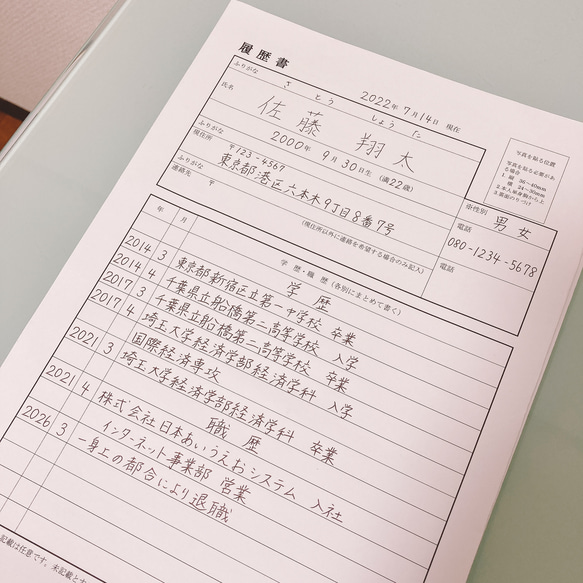 履歴書
2022年 7月14日 現在
ふりがな さ とう しょう た
氏名 佐藤 翔太
2000年 9月30日生 (満22歳)
写真を貼る位置
写真を貼る必要がある場合
1. 縦 36〜40mm
横 24〜30mm
2.本人単身胸から上
3.裏面のりづけ
※性別 男 女
ふりがな
現住所 〒123-4567
東京都港区六本木9丁目8番7号
電話
080-1234-5678
ふりがな
連絡先 〒
(現住所以外に連絡を希望する場合のみ記入)
電話
年 月 学歴・職歴 (各別にまとめて書く)
学 歴
2014 3 東京都新宿区立第一中学校 卒業
2014 4 千葉県立船橋第二高等学校 入学
2017 3 千葉県立船橋第二高等学校 卒業
2017 4 埼玉大学経済学部経済学科 入学
国際経済専攻
2021 3 埼玉大学経済学部経済学科 卒業
職 歴
2021 4 株式会社日本あいうえおシステム 入社
インターネット事業部 営業
2026 3 一身上の都合により退職
記載は任意です。未記載と